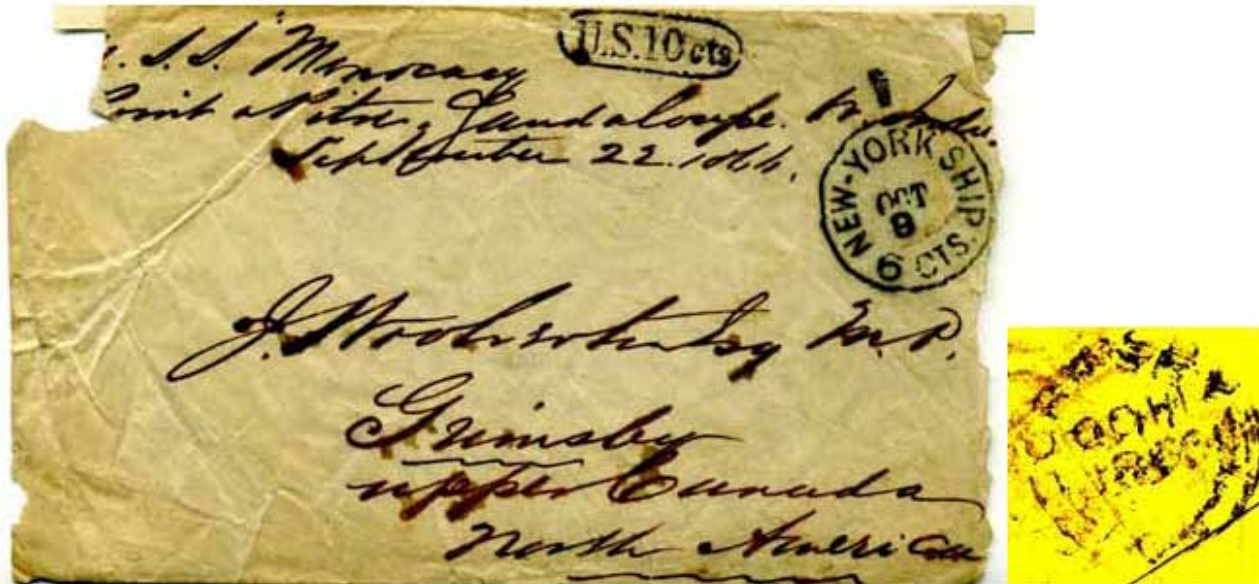 U.S. 10 cts
. S. S. "Monocacy
Point a Pitre, Guadaloupe. W. Indies
September 22. 1866.
NEW-YORK SHIP
OCT
9
6 CTS.
J. Esq M.P.
Grimsby
upper Canada
North America